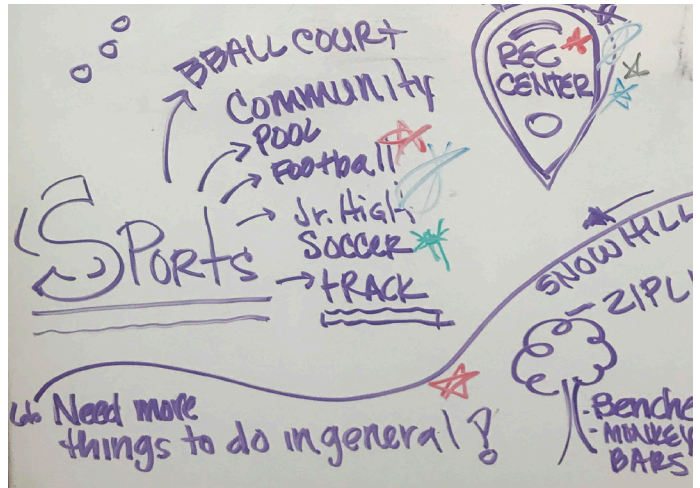 BBALL COURT
Community
POOL
Football
Jr. High
SOCCER
tRACK
SPORts
REC
CENTER
SNOWHILL
ZIPLI
Benche
MONKEY
BARS
Need more
things to do in general!